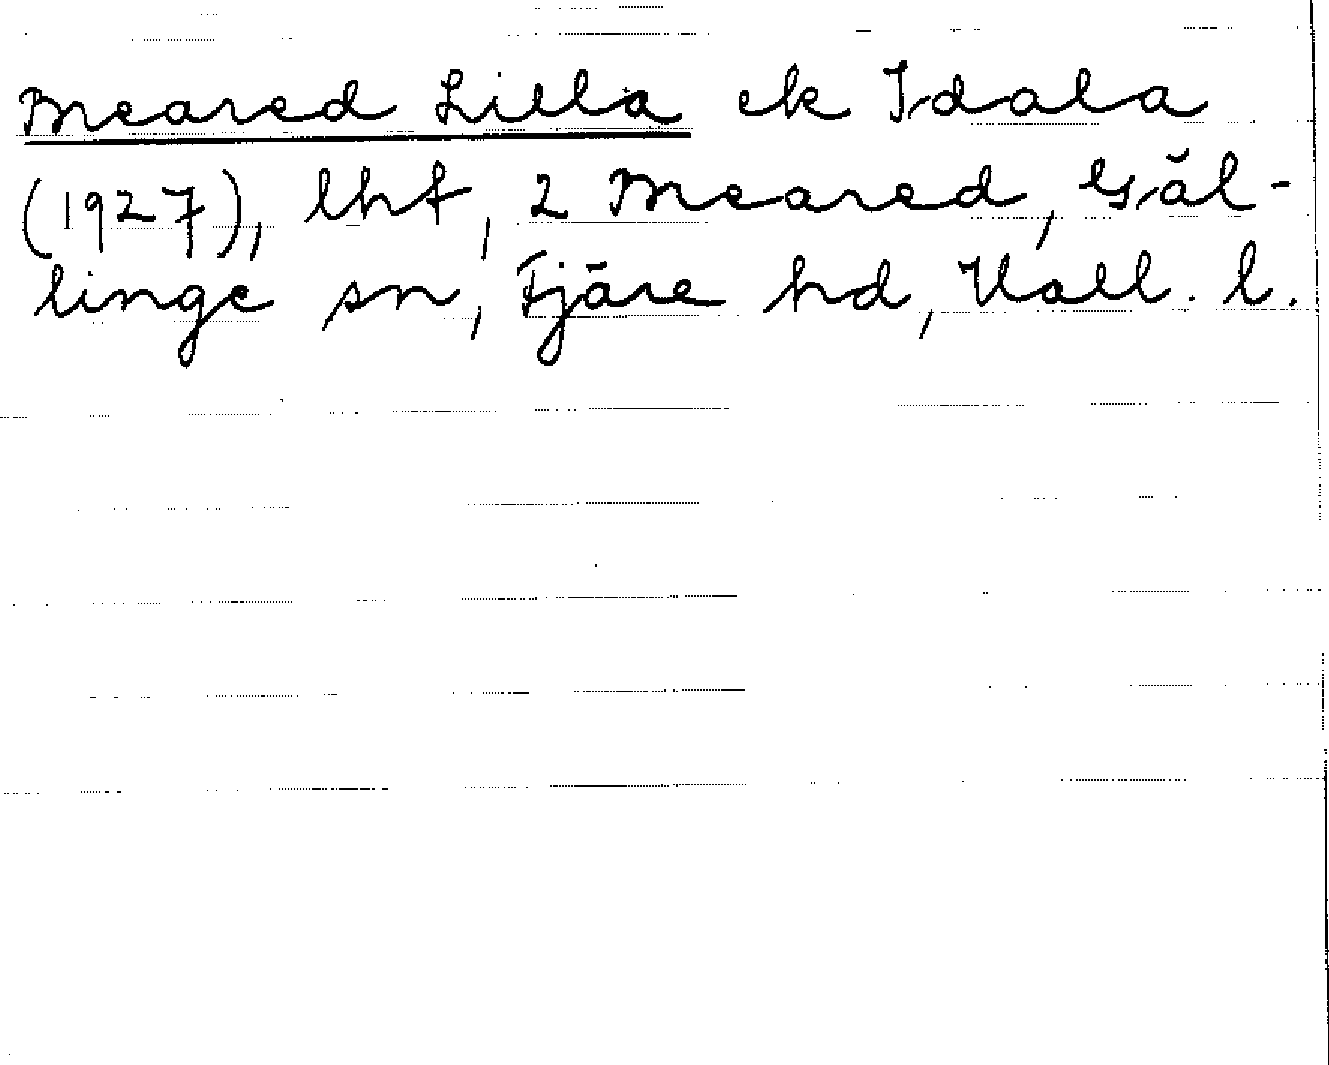 Meared Lilla ek Idala
(1927), lht, 2 Meared, Gäl-
linge sn, Fjäre hd, Hall. l.